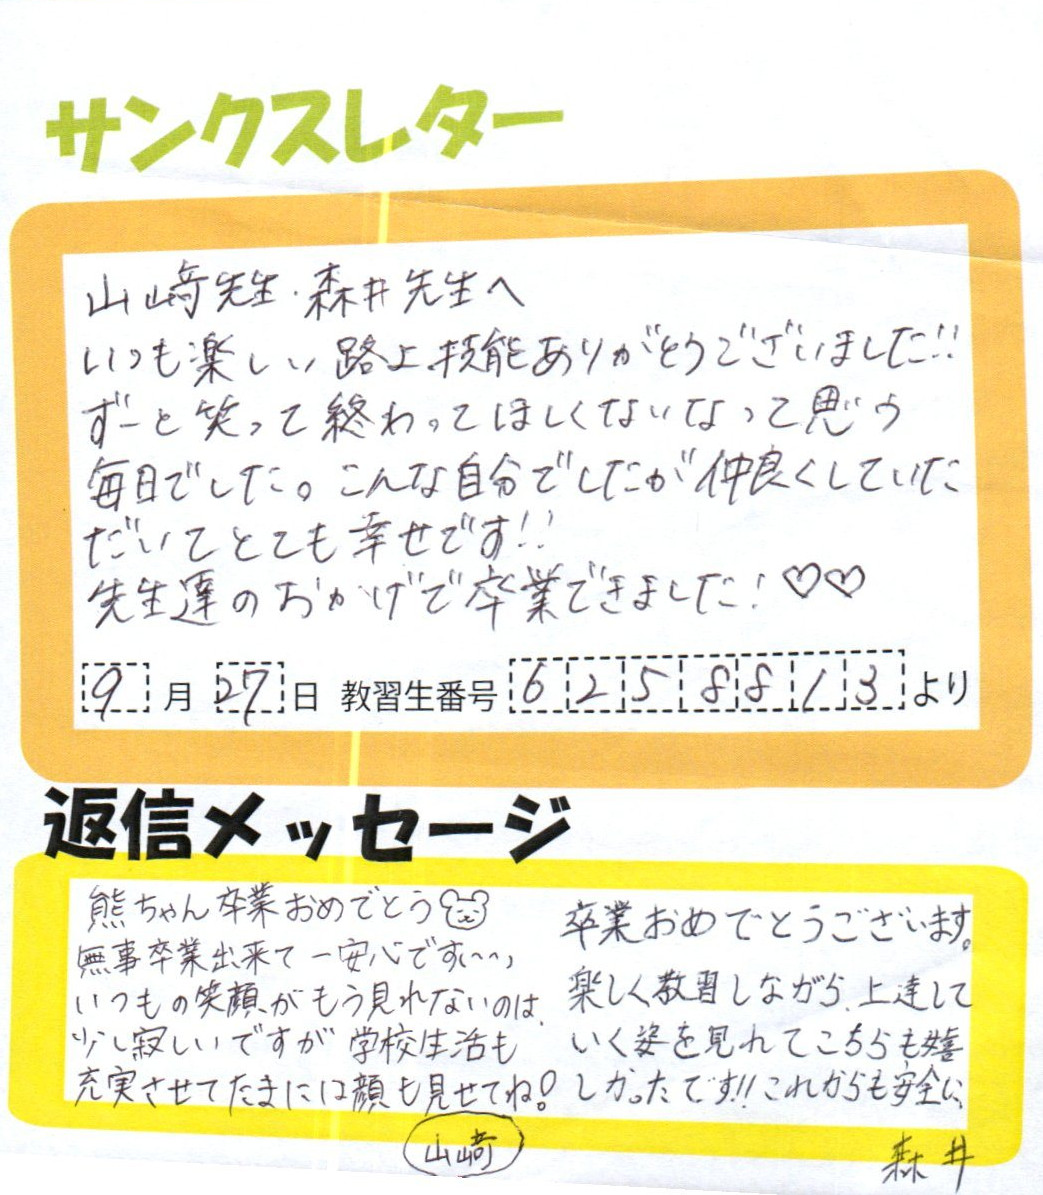 サンクスレター
山﨑先生・森井先生へ
いつも楽しい路上技能ありがとうございました!!
ずーと笑って終わってほしくないなって思う
毎日でした。こんな自分でしたが仲良くしていた
だいてとても幸せです!!
先生達のおかげで卒業できました!♡♡
9月27日 教習生番号 6258813より
返信メッセージ
熊ちゃん卒業おめでとう
無事卒業出来て一安心です(^^)
いつもの笑顔がもう見れないのは、
少し寂しいですが学校生活も
充実させてたまには顔も見せてね!
山﨑
卒業おめでとうございます。
楽しく教習しながら、上達して
いく姿を見れてこちらも嬉
しかったです!!これからも安全に、
森井